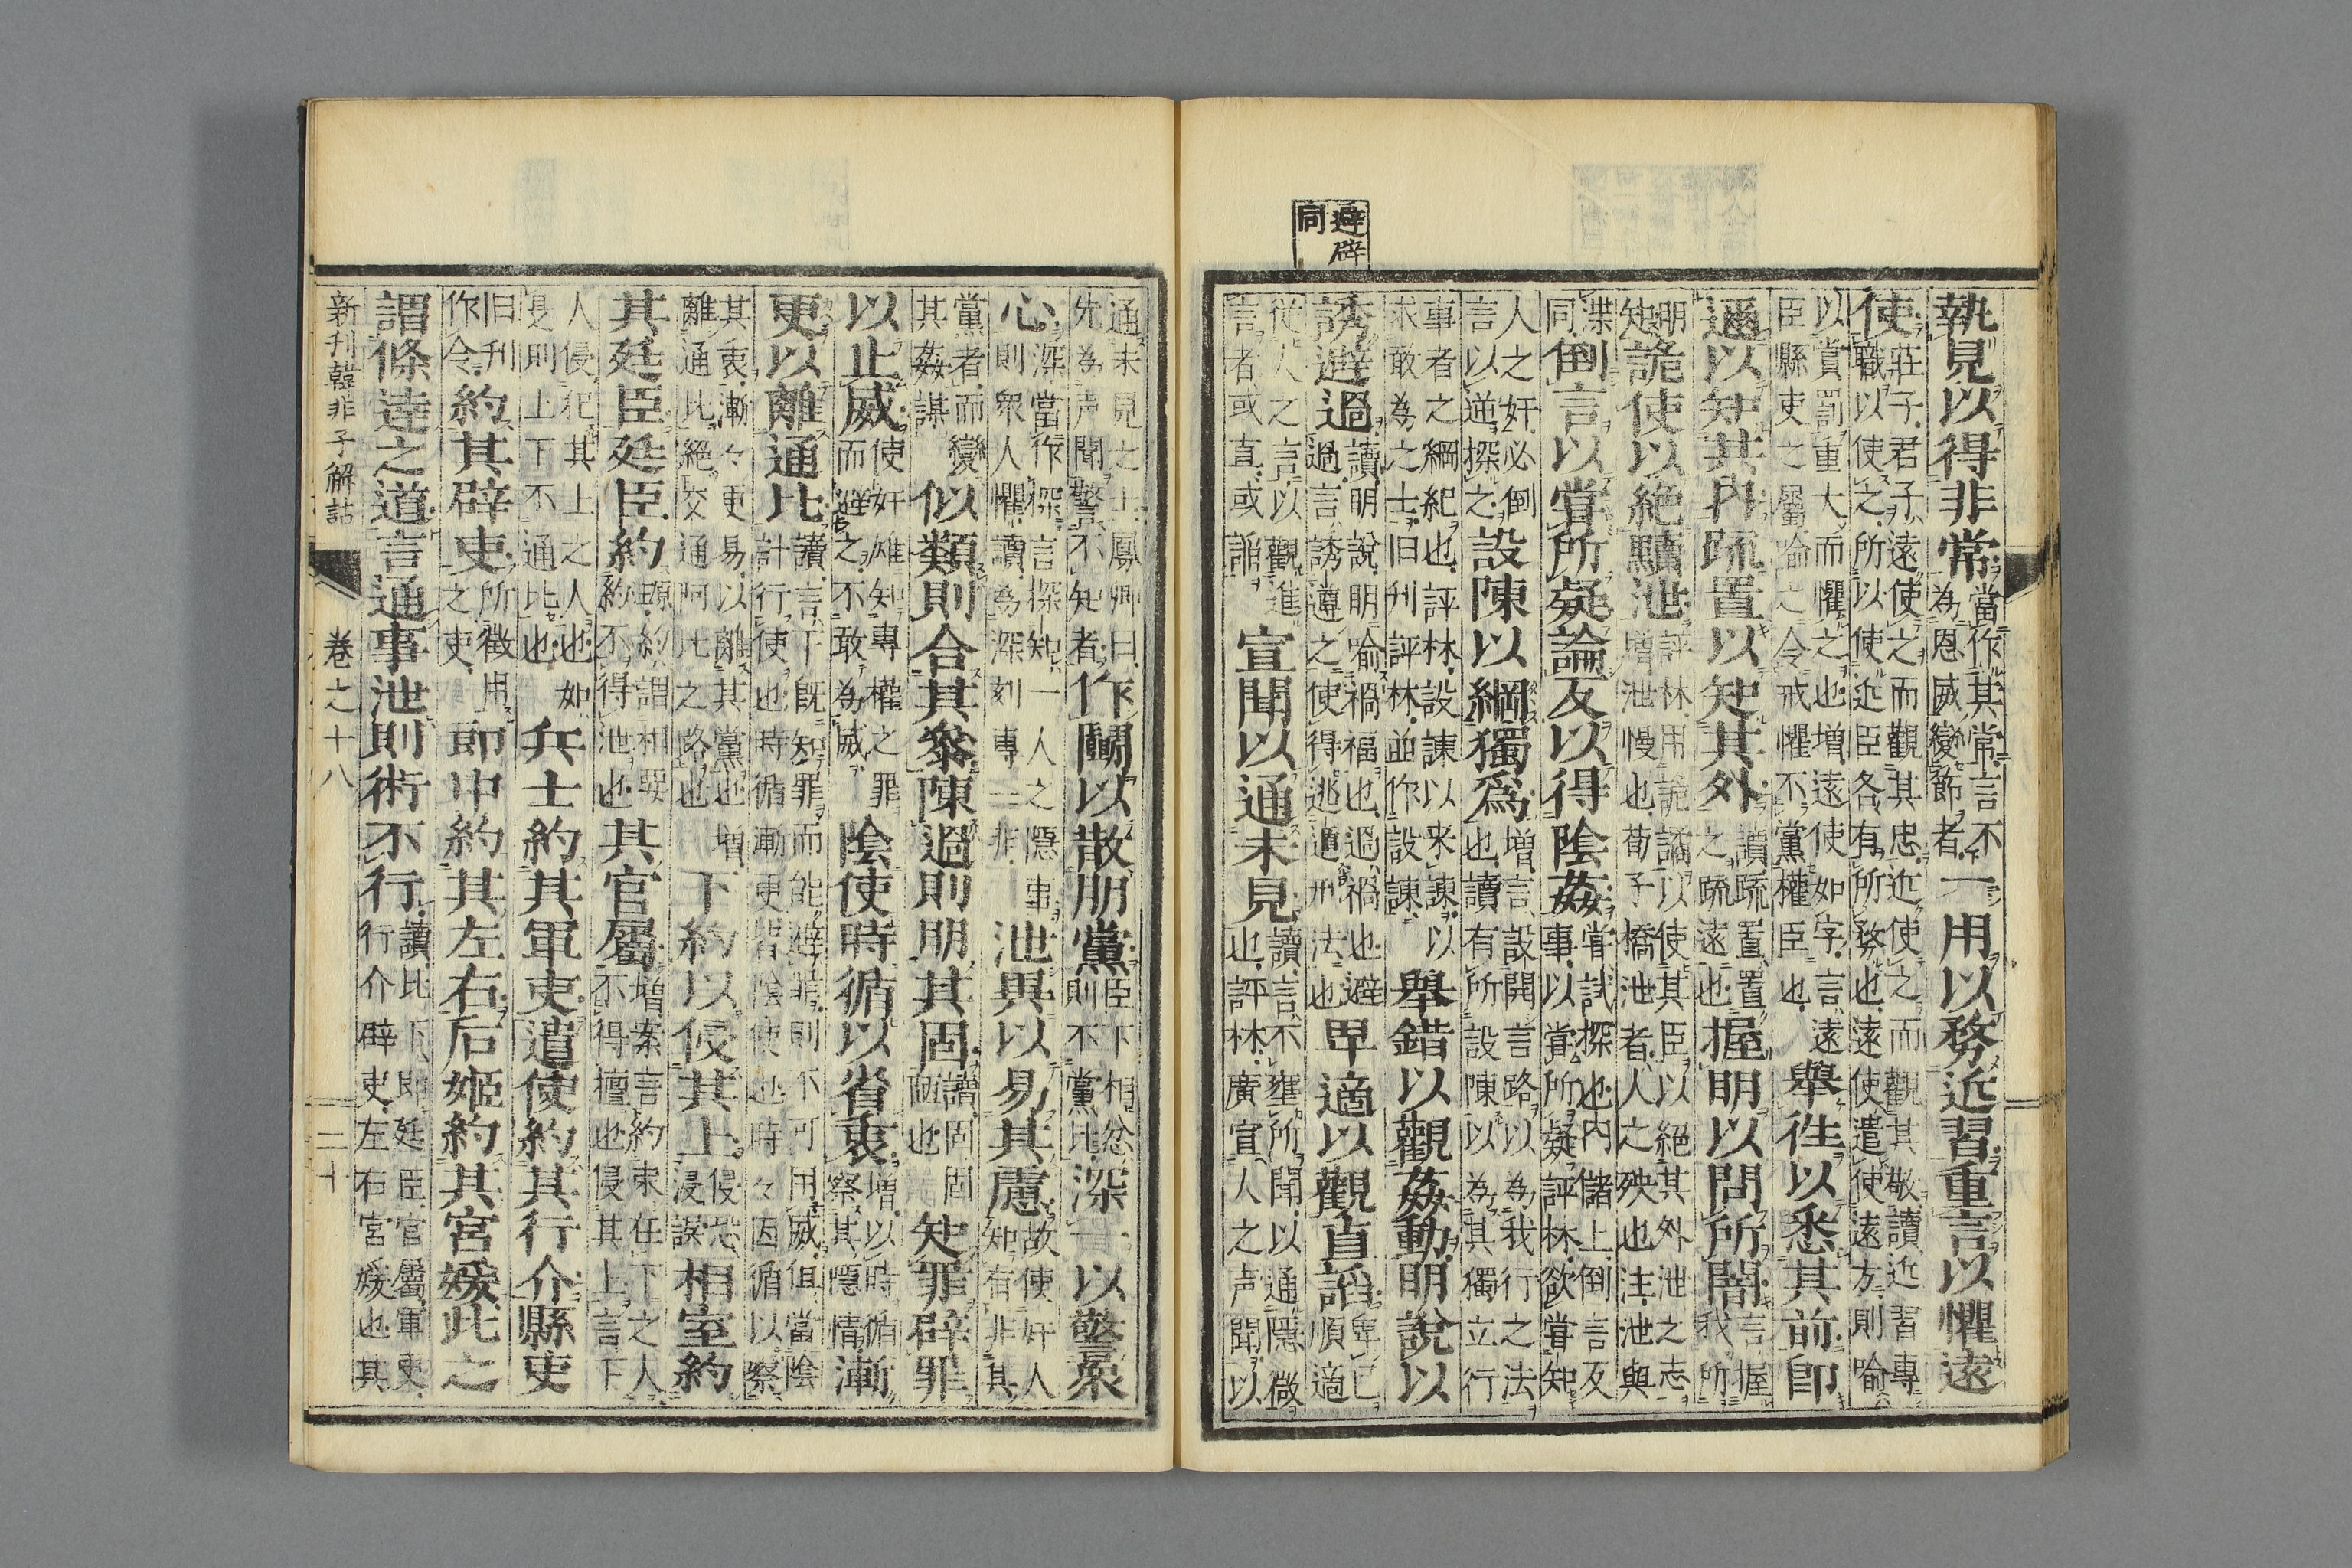 避辟
同
執見以得非常當作其常言不
為恩威變節者一用以務近習重言以懼遠
使莊子君子遠使之而觀其忠近使之而觀其敬讀近習專
職以使之所以使近臣各有所務也遠使遣使遠方則喻
以賞罰重大而懼之也增遠使如字言遠
臣縣吏之屬喻之令戒懼不黨權臣也舉徃以悉其前卽
邇以知其內疏置以知其外讀疏置置
之疏遠也握明以問所闇言握
我所
明評林用詭譎以使其臣以絕其外泄之志
知詭使以絕黷泄增泄慢也荀子橋泄者人之殃也注泄與
渫
同倒言以甞所疑論反以得陰姦甞試探也內儲上倒言反
事以甞所疑評林欲甞知
人之奸必倒
言以逆探之設陳以綱獨爲增言設開言路以為我行之法
也讀有所設陳以為其獨立行
事者之綱紀也評林設諫以来諫以
求敢為之士旧刊評林並作設諫舉錯以觀姦動明說以
誘避過讀明說明喻禍福也過禍也避
過言誘遵之使得逃遁刑法也卑適以觀直諂卑己
順適
從人之言以觀進
言者或直或諂宣聞以通未見讀言不壅所聞以通隱微
也評林廣宣人之声聞以
通未見之士鳳卿曰
先為声聞警不知者作鬭以散朋黨臣下相忿
則不黨比深一以警衆
心深當作探言探知一人之隱事
則衆人懼讀為深刻專一非泄異以易其慮故使奸人
知有非其
黨者而變
其姦謀似類則合其參陳過則明其固讀固固
陋也知罪辟罪
以止威使奸雄知專權之罪
而避之不敢為威陰使時循以省衷增以時循
察其隱情漸
更以離通比讀言下既知罪而能避罪則不可用威但當陰
計行使也時循漸更皆陰使也時々因循以察
其衷漸々更易以離其黨也增
離通比絕交通阿比之路也下約以侵其上侵恐
浸誤相室約
其廷臣廷臣約頭約謂相要
約不得泄也其官屬增案言約束任下之人
不得擅也侵其上言下
人侵犯其上之人也如
是則上下不通比也兵士約其軍吏遣使約其行介縣吏
旧刊
作令約其辟吏所徵用
之吏郞中約其左右后姬約其宮媛此之
謂條達之道言通事泄則術不行讀比下郎廷臣官屬軍吏
行介辟吏左右宮媛也其
新刊韓非子解詁　卷之十八　二十